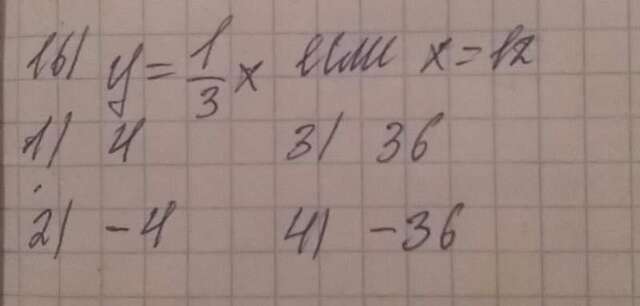 16) y = 1/3 x если x = 12
1) 4 3) 36
2) -4 4) -36